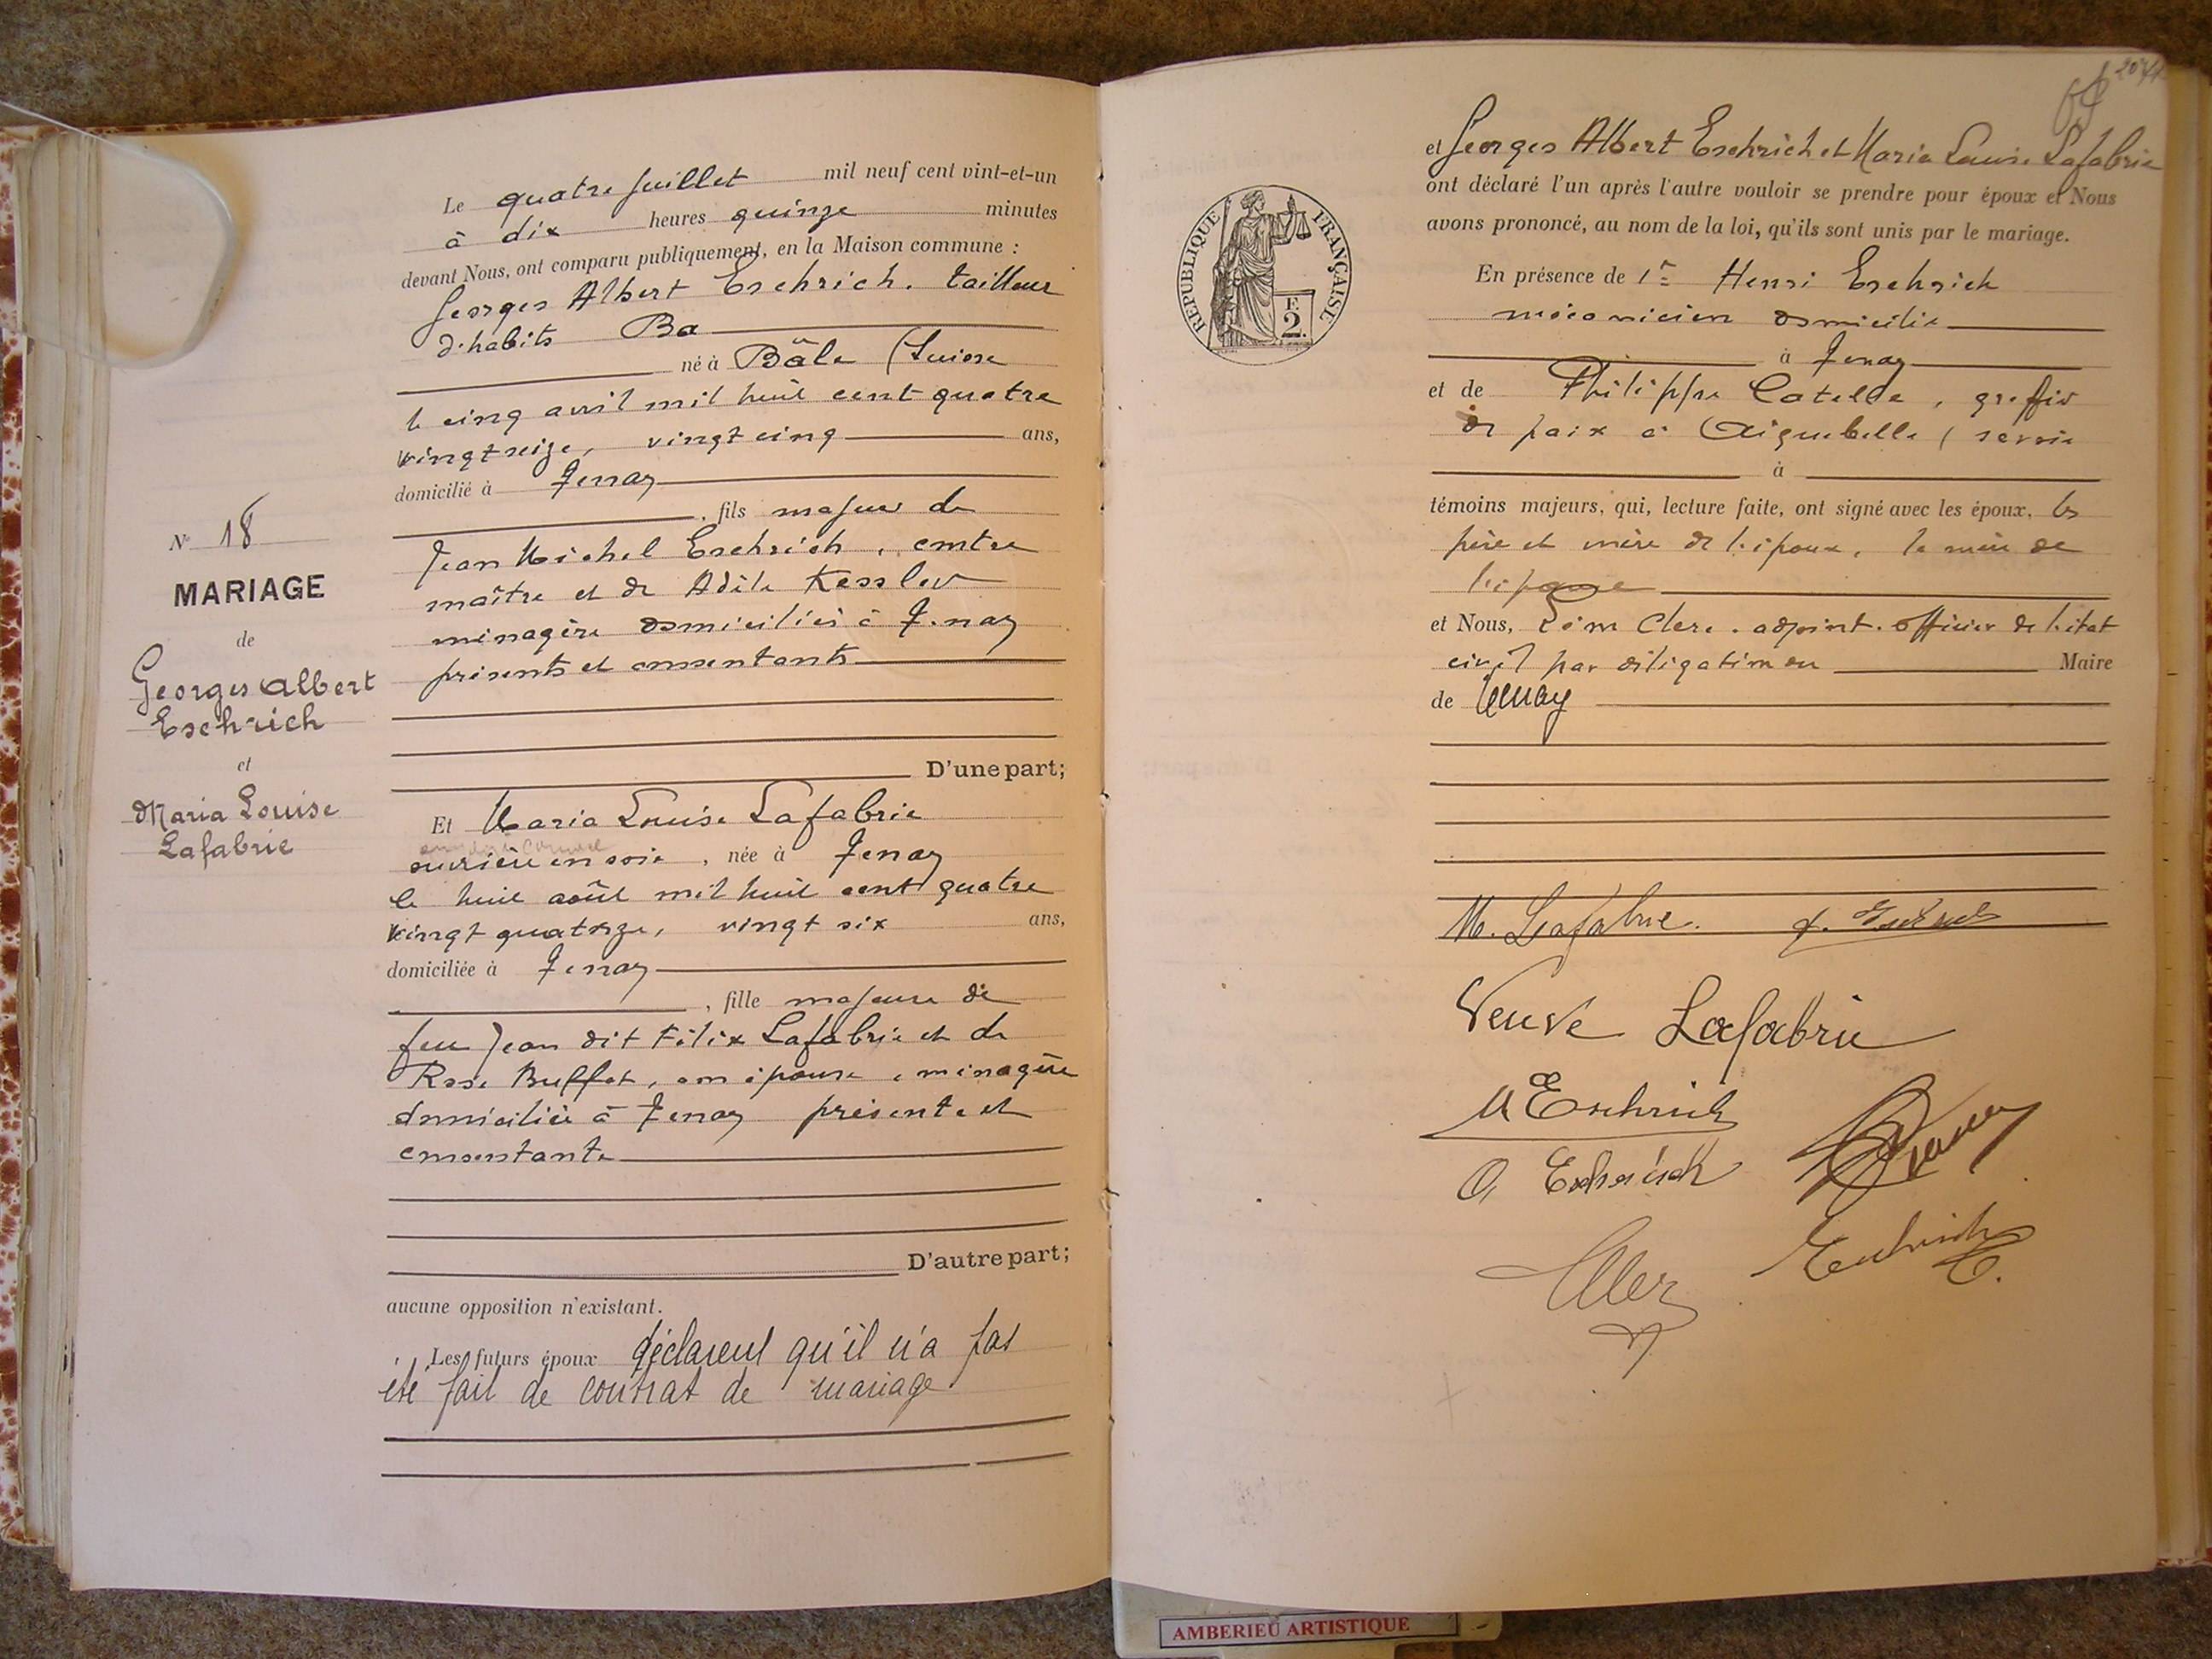 Le quatre Juillet mil neuf cent vint-et-un
à dix heures quinze minutes
devant Nous, ont comparu publiquement, en la Maison commune :
Georges Albert Eschrich. tailleur
d'habits Ba
né à Bâle (Suisse
le cinq avril mil huit cent quatre
vingt seize, vingt cinq ans,
domicilié à Tenay
, fils majeur de
Jean Michel Eschrich, contre
maître et de Adèle Kessler
ménagère domiciliés à Tenay
présents et consentants
D'une part;
N° 18
MARIAGE
de
Georges Albert
Eschrich
et
Maria Louise
Lafabrie
Et Maria Louise Lafabrie
ouvrière en soie, née à Tenay
le huit août mil huit cent quatre
vingt quatorze, vingt six ans,
domiciliée à Tenay
, fille majeure de
feu Jean dit Félix Lafabrie et de
Rose Buffet, son épouse, ménagère
domiciliée à Tenay présente et
consentante
D'autre part;
aucune opposition n'existant.
Les futurs époux déclarent qu'il n'a pas
été fait de contrat de mariage
et Georges Albert Eschrich et Maria Louise Lafabrie
ont déclaré l'un après l'autre vouloir se prendre pour époux et Nous
avons prononcé, au nom de la loi, qu'ils sont unis par le mariage.
REPUBLIQUE FRANÇAISE
F.
2.
En présence de 1r Henri Eschrich
mécanicien domicilié
à Tenay
et de Philippe Catelle, greffier
de paix à Aiguebelle (savoie
à
témoins majeurs, qui, lecture faite, ont signé avec les époux, les
père et mère de l'époux, la mère de
l'épouse
et Nous, Léon Clerc. adjoint. officier de l'état
civil par délégation du Maire
de Tenay
M. Lafabrie.
Veuve Lafabrie
M Eschrich
A Eschrich
Eschrich
AMBERIEU ARTISTIQUE